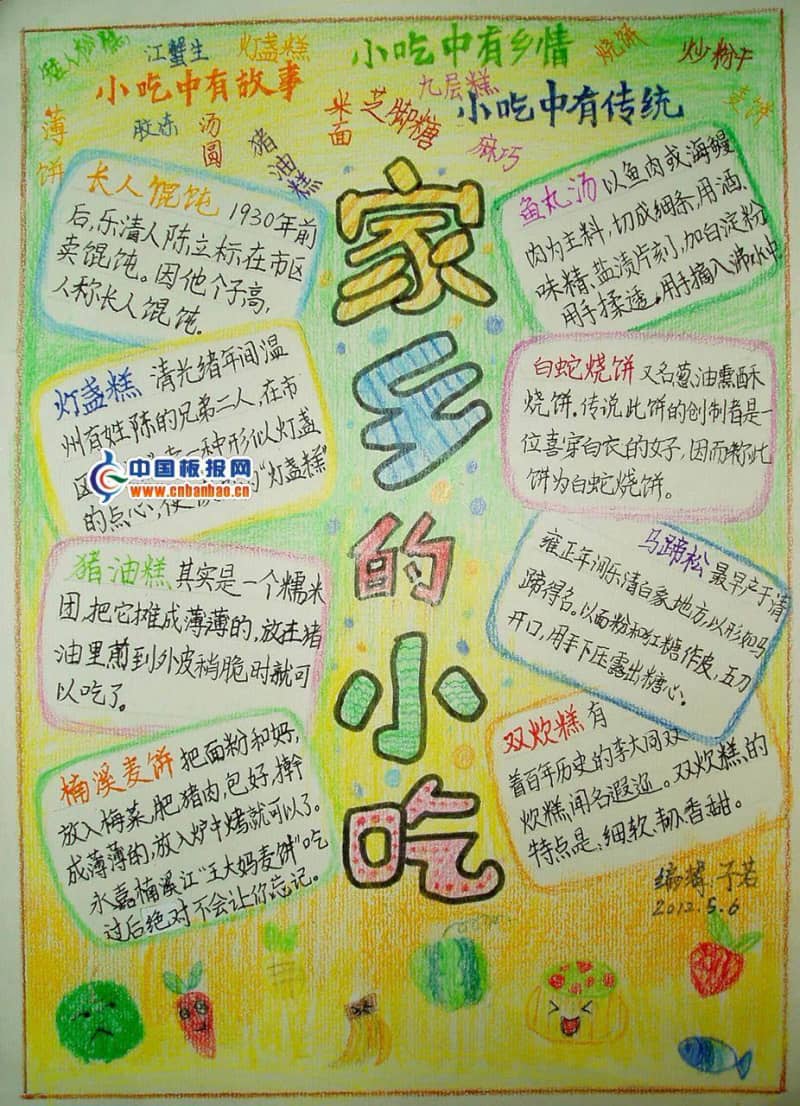 江蟹生
灯盏糕
小吃中有乡情
烧饼
炒粉干
小吃中有故事
九层糕
小吃中有传统
薄饼
胶冻
汤圆
猪油糕
米面
芝脚糖
麻巧
麦饼
家乡的小吃
长人馄饨 1930年前
后,乐清人陈立标,在市区
卖馄饨。因他个子高,
人称长人馄饨.
灯盏糕 清光绪年间温
州有姓陈的兄弟二人,在市
区
一种形似灯盏
的点心,
“灯盏糕”
中国板报网
www.cnbanbao.cn
猪油糕 其实是一个糯米
团,把它摊成薄薄的,放在猪
油里煎到外皮稍脆时就可
以吃了。
楠溪麦饼 把面粉和好,
放入梅菜,肥猪肉,包好,擀
成薄薄的,放入炉中烤就可以了。
永嘉楠溪江“王大妈麦饼”吃
过后绝对不会让你忘记。
鱼丸汤 以鱼肉或海鳗
肉为主料,切成细条,用酒、
味精、盐渍片刻,加白淀粉
用手揉透。用手摘入沸水中
白蛇烧饼 又名葱油熏酥
烧饼.传说此饼的创制者是一
位喜穿白衣的女子,因而称此
饼为白蛇烧饼。
马蹄松 最早产于清
雍正年间乐清白象地方,以形如马
蹄得名。以面粉和红糖作皮,五刀
开口,用手下压露出糖心。
双炊糕 有
着百年历史的李大同双
炊糕,闻名遐迩。双炊糕的
特点是:细软、韧、香甜。
编辑:子若
2012.5.6